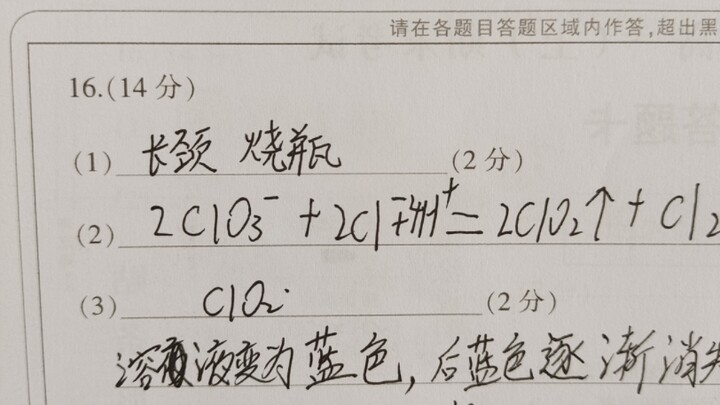 请在各题目答题区域内作答,超出黑
16.(14分)
(1) 长颈 烧瓶 (2分)
(2) 2ClO₃⁻ + 2Cl⁻+4H⁺ = 2ClO₂↑ + Cl₂
(3) ClO₂ (2分)
溶液变为蓝色, 后蓝色逐渐消失